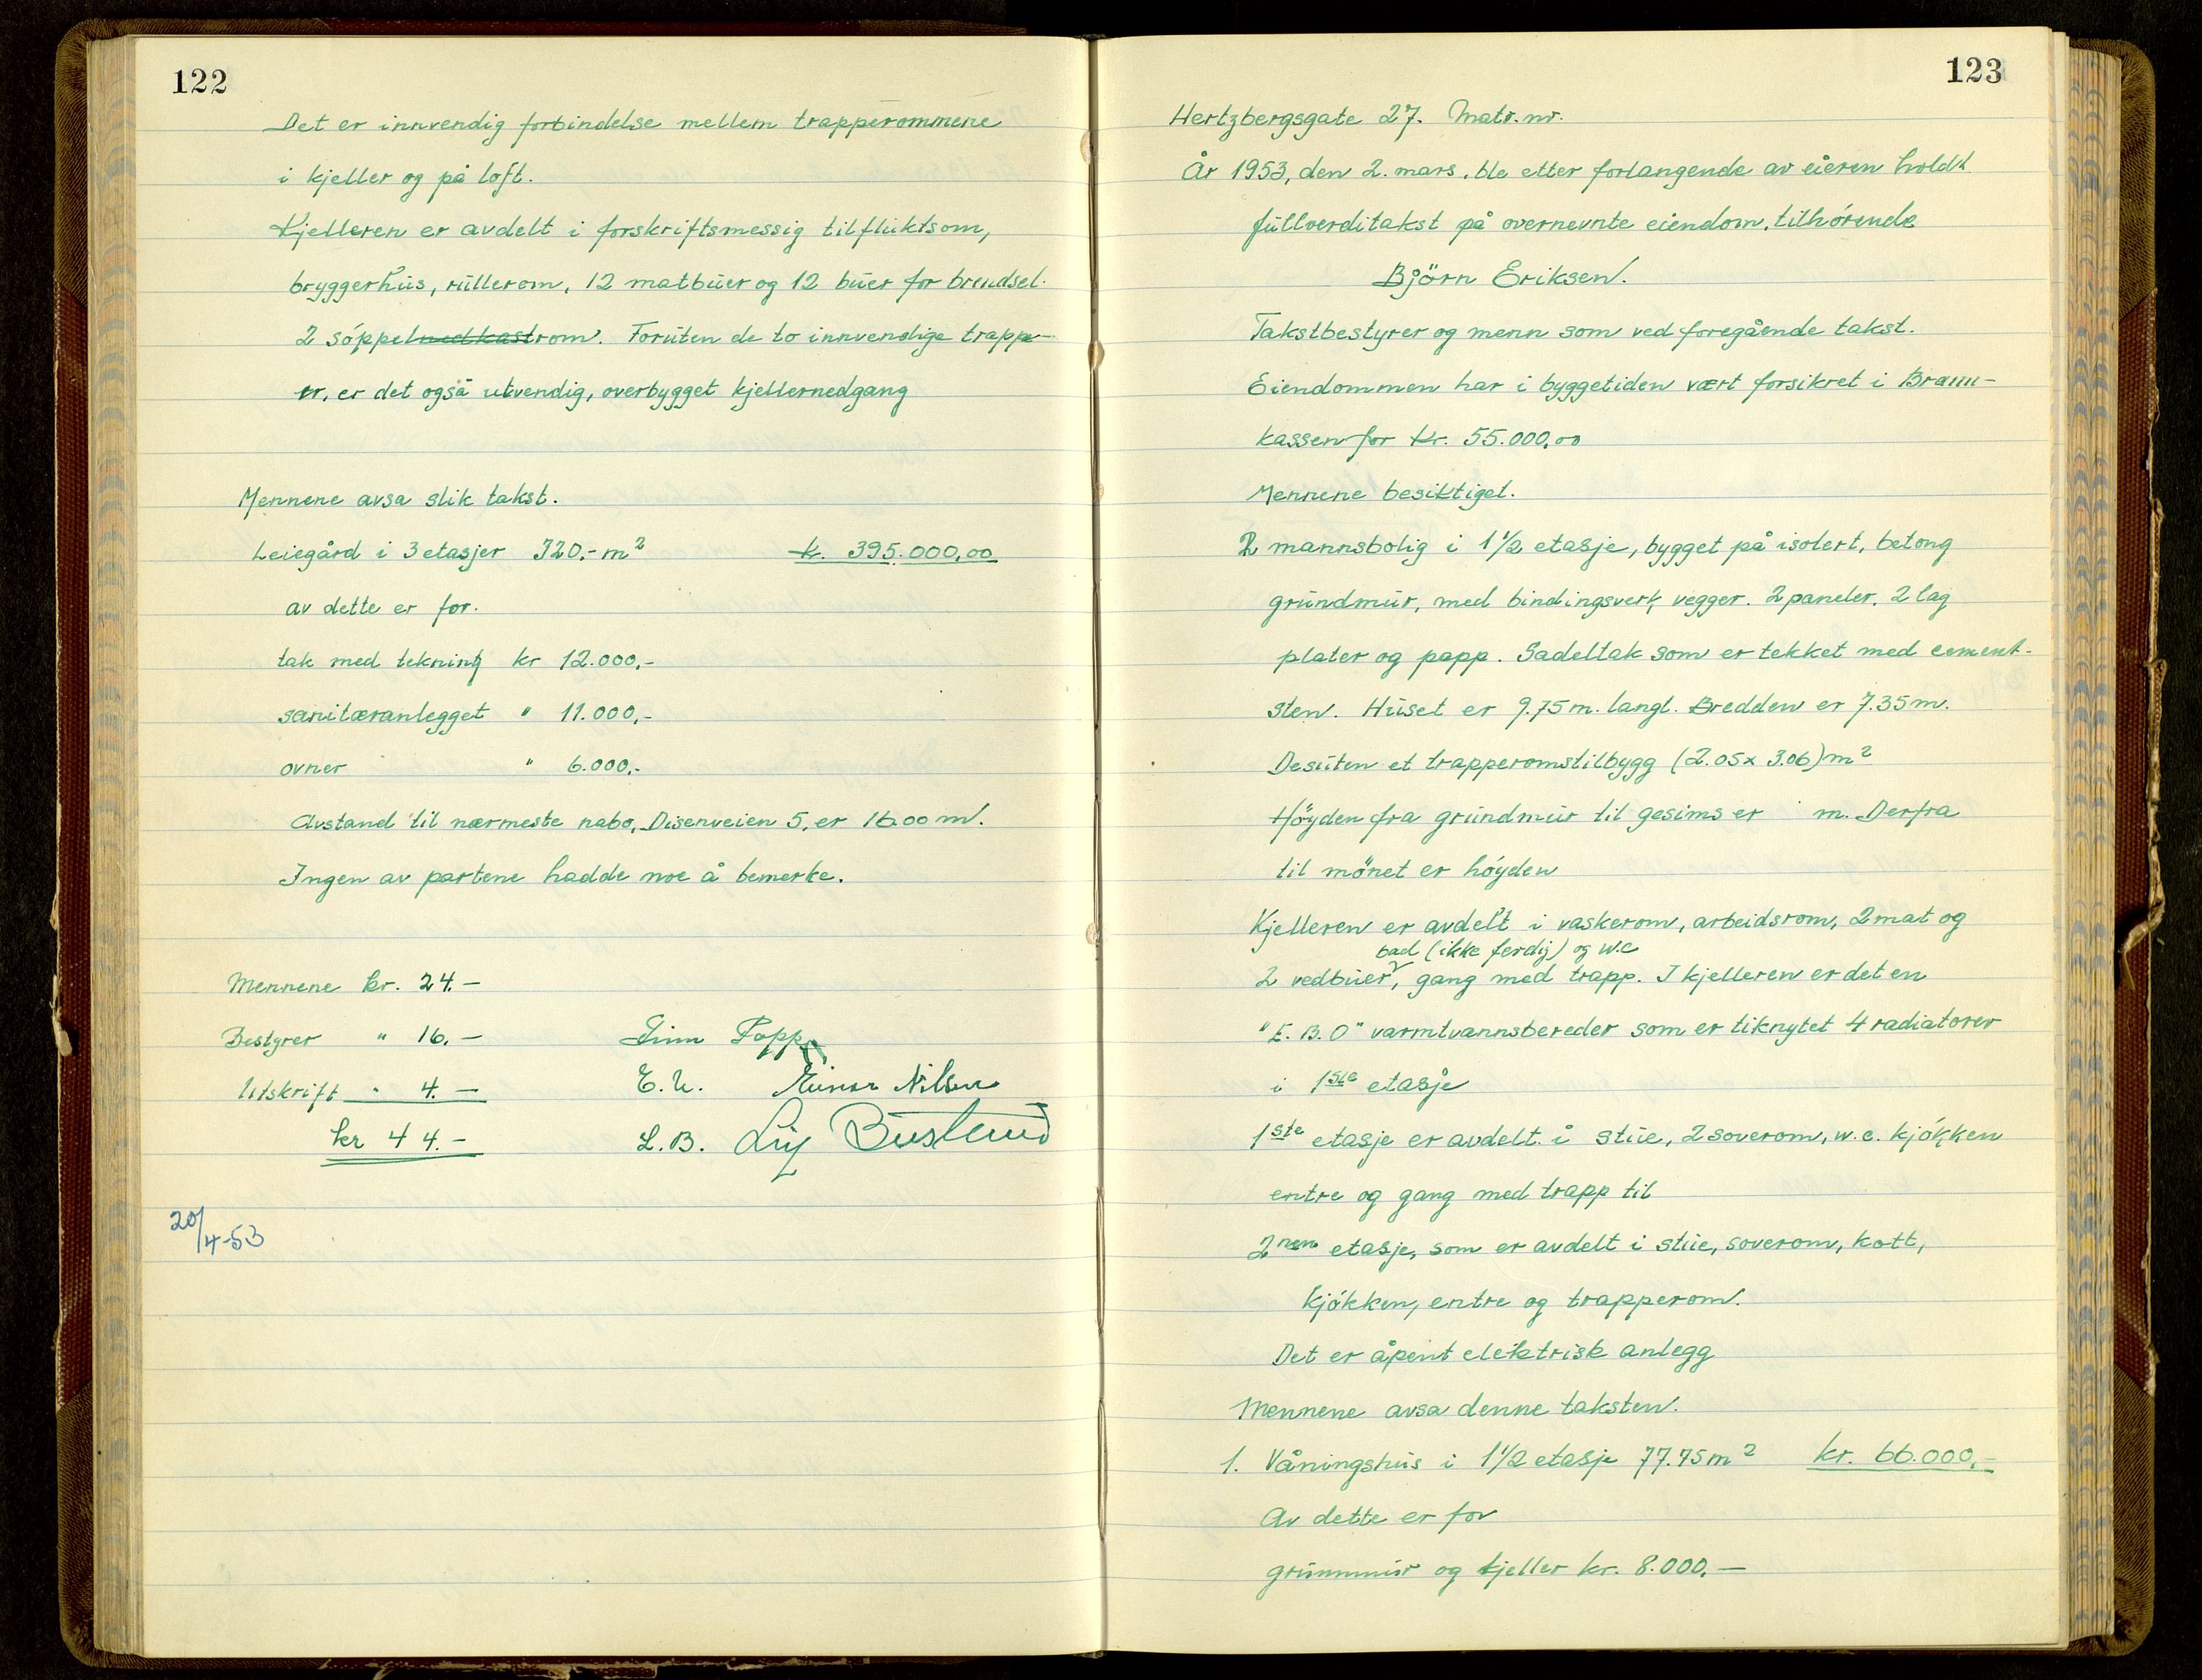 122
Det er innvendig forbindelse mellem trapperommene
i kjeller og på loft.
Kjelleren er avdelt i forskriftsmessig tilfluktsom,
bryggerhus, rullerom, 12 matbuer og 12 buer for brendsel.
2 söppelnedkastrom. Foruten de to innvendige trapp-
er, er det også utvendig, overbygget kjellernedgang
Mennene avsa slik takst.
Leiegård i 3 etasjer 320,- m² k. 395.000,00
av dette er for.
tak med tekning kr 12.000,-
sanitæranlegget " 11.000,-
ovner " 6.000,-
Avstand til nærmeste nabo, Disenveien 5, er 16.00 m.
Ingen av partene hadde noe å bemerke.
Mennene kr. 24.-
Bestyrer " 16.- Finn Popp
Utskrift " 4.- E.N. Einar Nilsen
kr 44.- L.B.
20/4-53
123
Hertzbergsgate 27. Matr. nr.
År 1953, den 2. mars, ble etter forlangende av eieren holdt
fullverditakst på overnevnte eiendom, tilhörende
Björn Eriksen.
Takstbestyrer og menn som ved foregående takst.
Eiendommen har i byggetiden vært forsikret i Brann-
kassen for kr. 55.000,00
Mennene besiktiget.
2 mannsbolig i 1 1/2 etasje, bygget på isolert, betong
grundmur, med bindingsverk, vegger. 2 paneler, 2 lag
plater og papp. Sadeltak som er tekket med cement-
sten. Huset er 9.75 m. langt. Bredden er 7.35 m.
Desuten et trapperomstilbygg (2.05 x 3.06) m²
Höyden fra grundmur til gesims er m. Derfra
til mönet er höyden
Kjelleren er avdelt i vaskerom, arbeidsrom, 2 mat og
bad (ikke ferdig) og w.c
2 vedbuer, gang med trapp. I kjelleren er det en
"E.B.O" varmtvannsbereder som er tiknytet 4 radiatorer
i 1ste etasje
1ste etasje er avdelt i stue, 2 soverom, w.c. kjökken
entre og gang med trapp til
2nen etasje, som er avdelt i stue, soverom, kott,
kjökken, entre og trapperom.
Det er åpent elektrisk anlegg
Mennene avsa denne taksten.
1. Våningshus i 1 1/2 etasje 77.75 m² kr. 66.000,-
Av dette er for
grunnmur og kjeller kr. 8.000,-